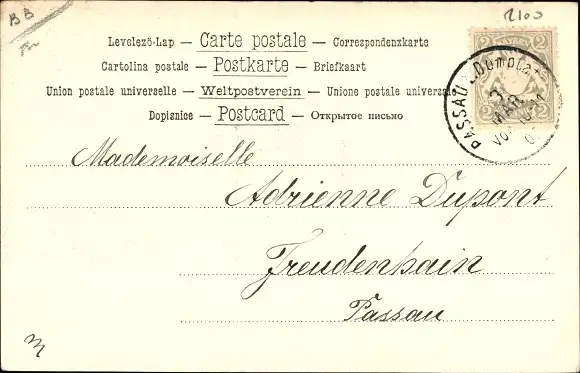 BB
2100
Levelező-Lap — Carte postale — Correspondenzkarte
Cartolina postale — Postkarte — Briefkaart
Union postale universelle — Weltpostverein — Unione postale universale
Dopisnice — Postcard — Открытое письмо
2 2
2 2
PASSAU
3
MAR
VOR
Mademoiselle
Adrienne Dupont
Freudenhain
Passau